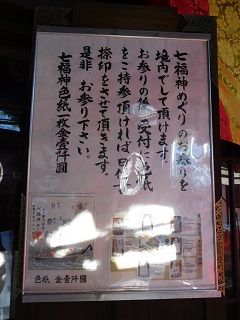 七福神めぐりのお参りを
境内でして頂けます。
お参りの後、受付に色紙
をご持参頂ければ
捺印をさせて頂きます。
是非、お参り下さい。
七福神色紙一枚金壹阡圓
色紙 金壹阡圓